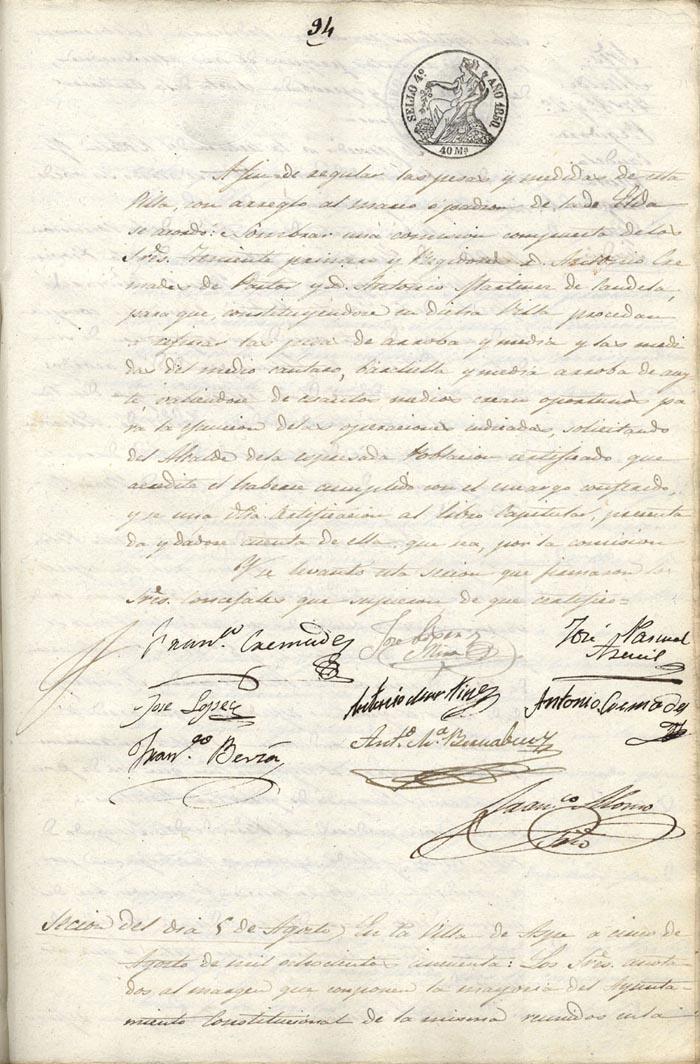 94
SELLO 4º AÑO 1850.
40 Ms
A fin de regular las pesas y medidas de esta
Villa, con arreglo al marco ó padron de la de Elda
se acordó: Nombrar una comision compuesta de los
Sres. Teniente primero y Regidores D. Antonio Cre
mades de Pastor y D. Antonio Martinez de Candela,
para que, constituyendose en dicha Villa procedan
á afinar las pesas de arroba y media y las medi
das del medio cantaro, barchilla y media arroba de acey
te valiendose de cuantos medios crean oportunos pa
ra la egecucion de las operaciones indicadas, solicitando
del Alcalde de la espresada Poblacion certificado que
acredite el haberse cumplido con el encargo conferido,
y se una dha. certificacion al libro Capitular, presenta
da y dadose cuenta de ella, que sea, por la comision
Y se levantó esta secion que firmaron los
Sres. Concejales que supieron de que certifico=
Franco. Cremades
José Lopez
Mira
José Pascual
Azeril
José Lopez
Antonio Martinez
Antonio Cremades
Franco. Berná
Anto. Ma. Bernabeu
Franco. Alonso
Srio
Secion del dia 5 de Agosto) En la Villa de Aspe a cinco de
Agosto de mil ochocientos cincuenta: Los Sres. anota
dos al margen que componen la mayoria del Ayunta
miento Constitucional de la misma reunidos en la